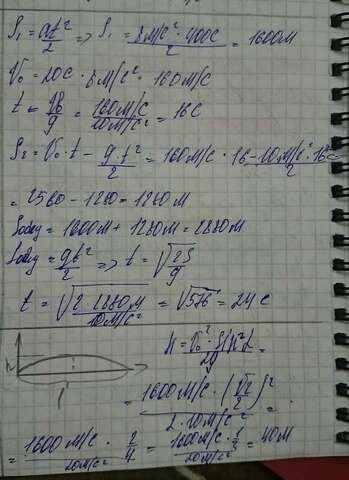 S₁ = at²/2 => S₁ = 8м/с² · 400с/2 = 1600м
V₀ = 20с · 8м/с² = 160м/с
t = V₀/g = 160м/с / 10м/с² = 16с
S₂ = V₀ · t - g · t²/2 = 160м/с · 16 - 10м/с² · 16с/2
= 2560 - 1280 = 1280м
Sобщ = 1600м + 1280м = 2880м
Sобщ = gt²/2 => t = √2S/g
t = √2 · 2880м/10м/с² = √576 = 24с
h = V₀² · sin²α/2g =
h
l
= 1600м/с · (√2/2)² / 2 · 10м/с² =
= 1600м/с · 2/4 / 20м/с² = 1600м/с · 1/2 / 20м/с² = 40м